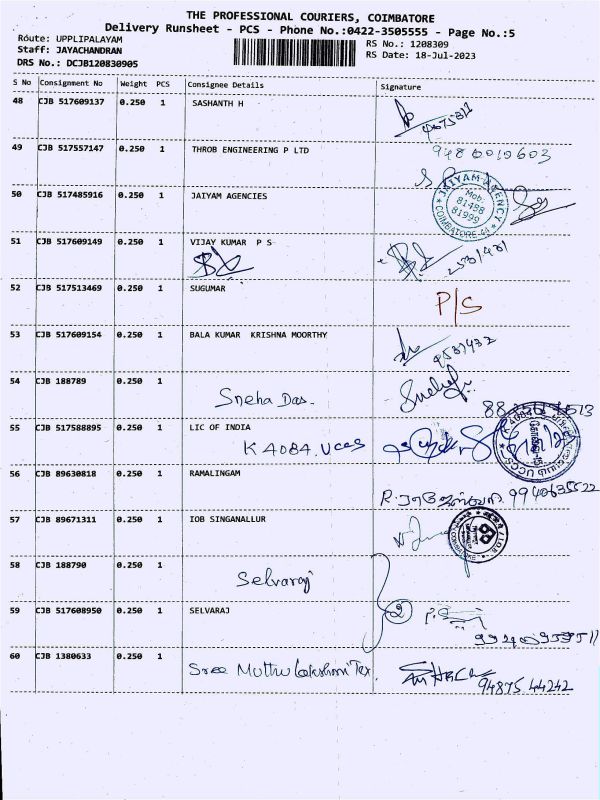 THE PROFESSIONAL COURIERS, COIMBATORE
Delivery Runsheet - PCS - Phone No.:0422-3505555 - Page No.:5
Route: UPPLIPALAYAM
Staff: JAYACHANDRAN
DRS No.: DCJB120830905
RS No.: 1208309
RS Date: 18-Jul-2023
S No Consignment No Weight PCS Consignee Details Signature
48 CJB 517609137 0.250 1 SASHANTH H
49 CJB 517557147 0.250 1 THROB ENGINEERING P LTD 9480019603
50 CJB 517485916 0.250 1 JAIYAM AGENCIES
JAIYAM AGENCY
Mob:
81488
81999
COIMBATORE-44
51 CJB 517609149 0.250 1 VIJAY KUMAR P S
52 CJB 517513469 0.250 1 SUGUMAR P/S
53 CJB 517609154 0.250 1 BALA KUMAR KRISHNA MOORTHY
54 CJB 188789 0.250 1 Sneha Das.
55 CJB 517588895 0.250 1 LIC OF INDIA
K 4084. UCCS
56 CJB 89630818 0.250 1 RAMALINGAM
9940635522
57 CJB 89671311 0.250 1 IOB SINGANALLUR
58 CJB 188790 0.250 1 Selvaraj
59 CJB 517608950 0.250 1 SELVARAJ 2
60 CJB 1380633 0.250 1 Sree Muthu Lakshmi Tex.
94875 44242